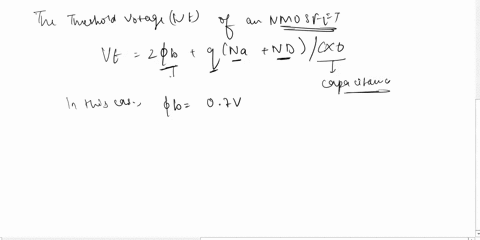 The Threshold Voltage (Vt) of an NMOSFET
Vt = 2ϕb + q (Na + ND) / Cxo
capacitance
In this case, ϕb = 0.7V